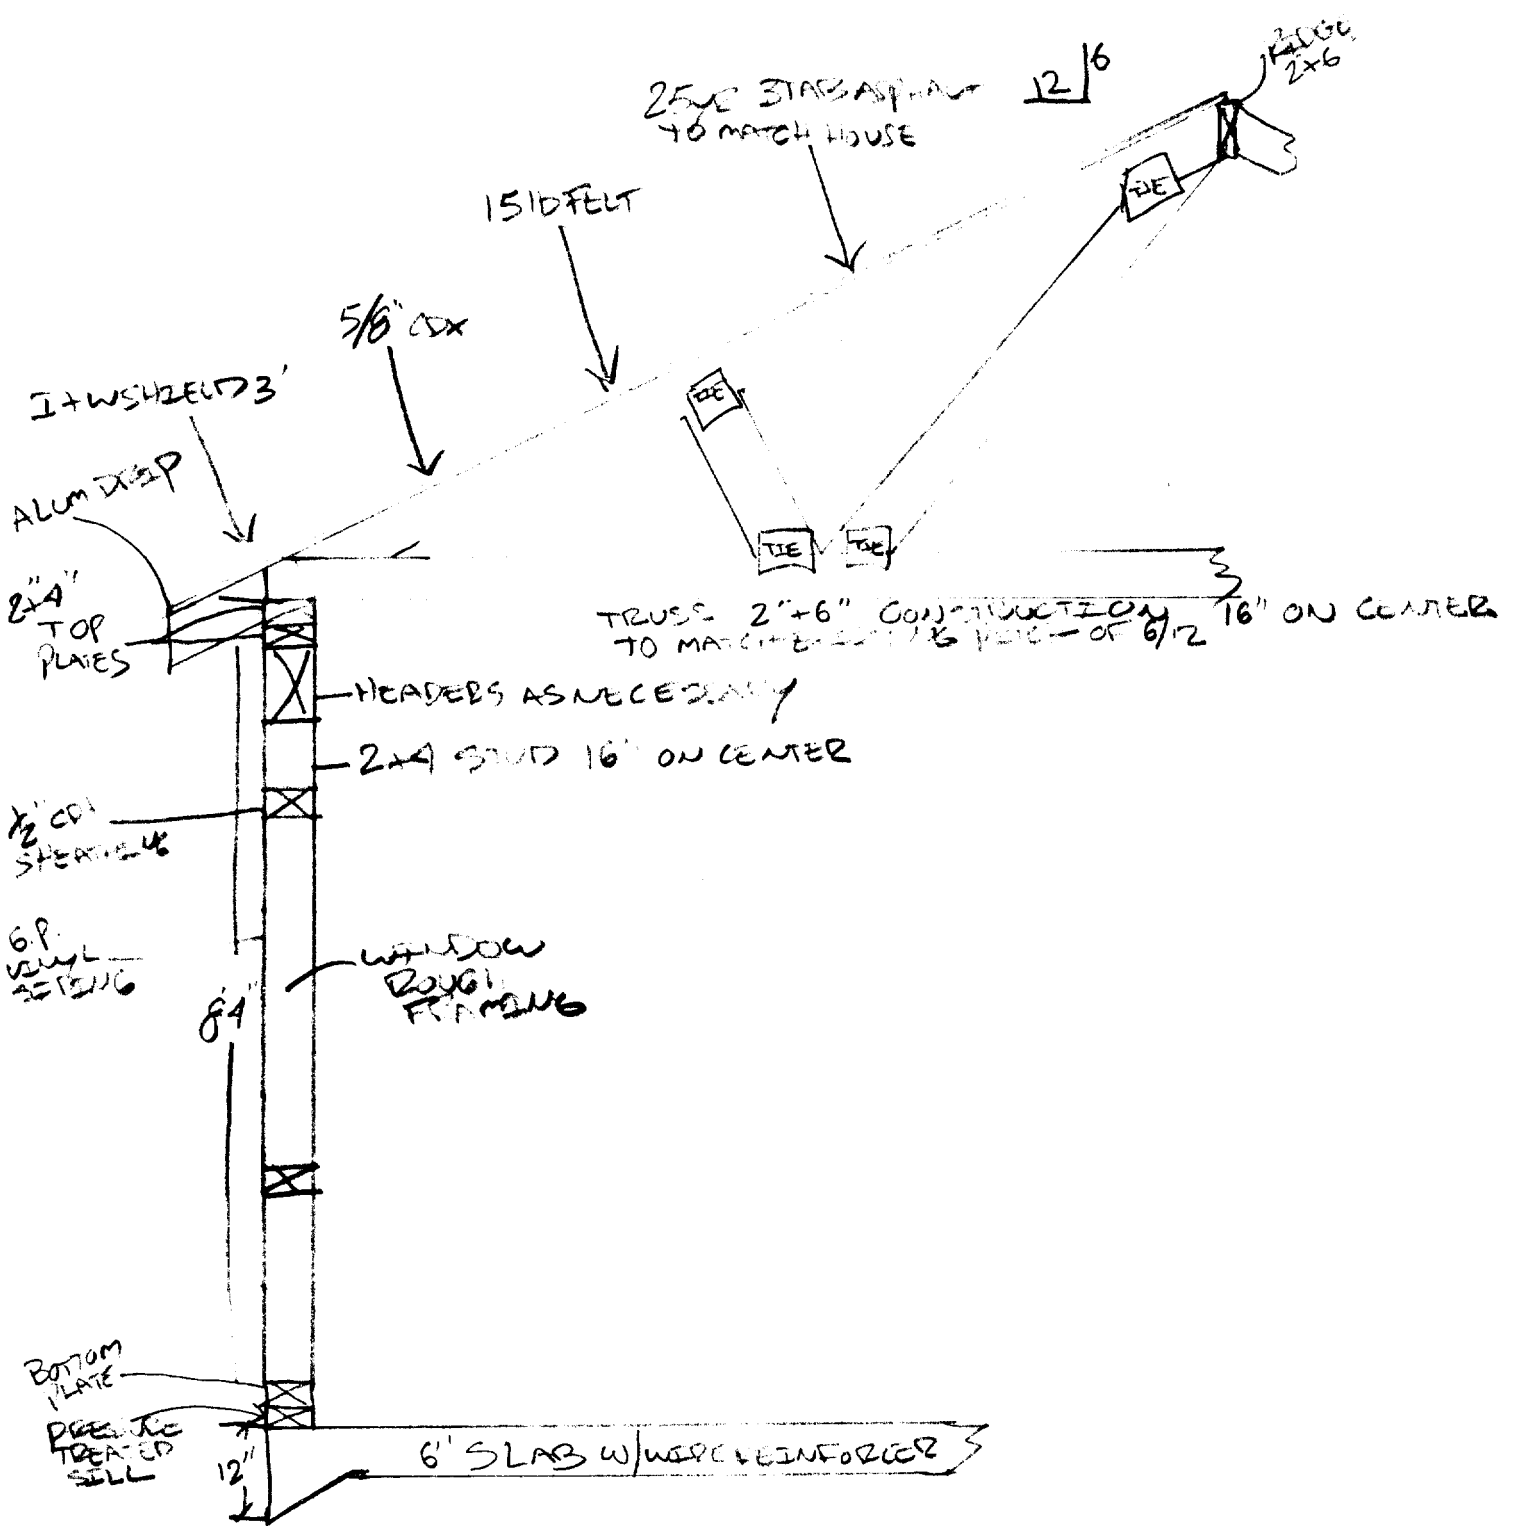 RIDGE
2x6
12 6
25yr 3TAB ASPHALT
TO MATCH HOUSE
15lb FELT
5/8" CDX
I+W SHIELD 3'
ALUM DRIP
TIE
TIE
TIE
TIE
2"x4"
TOP
PLATES
TRUSS 2"x6" CONSTRUCTION 16" ON CENTER
TO MATCH OF 6/12
HEADERS AS NECESSARY
2x4 STUD 16" ON CENTER
1/2" CDX
SHEATHING
VINYL
SIDING
WINDOW
ROUGH
FRAMING
8'4"
BOTTOM
PLATE
PRESSURE
TREATED
SILL
12"
6" SLAB W/WIRE REINFORCER